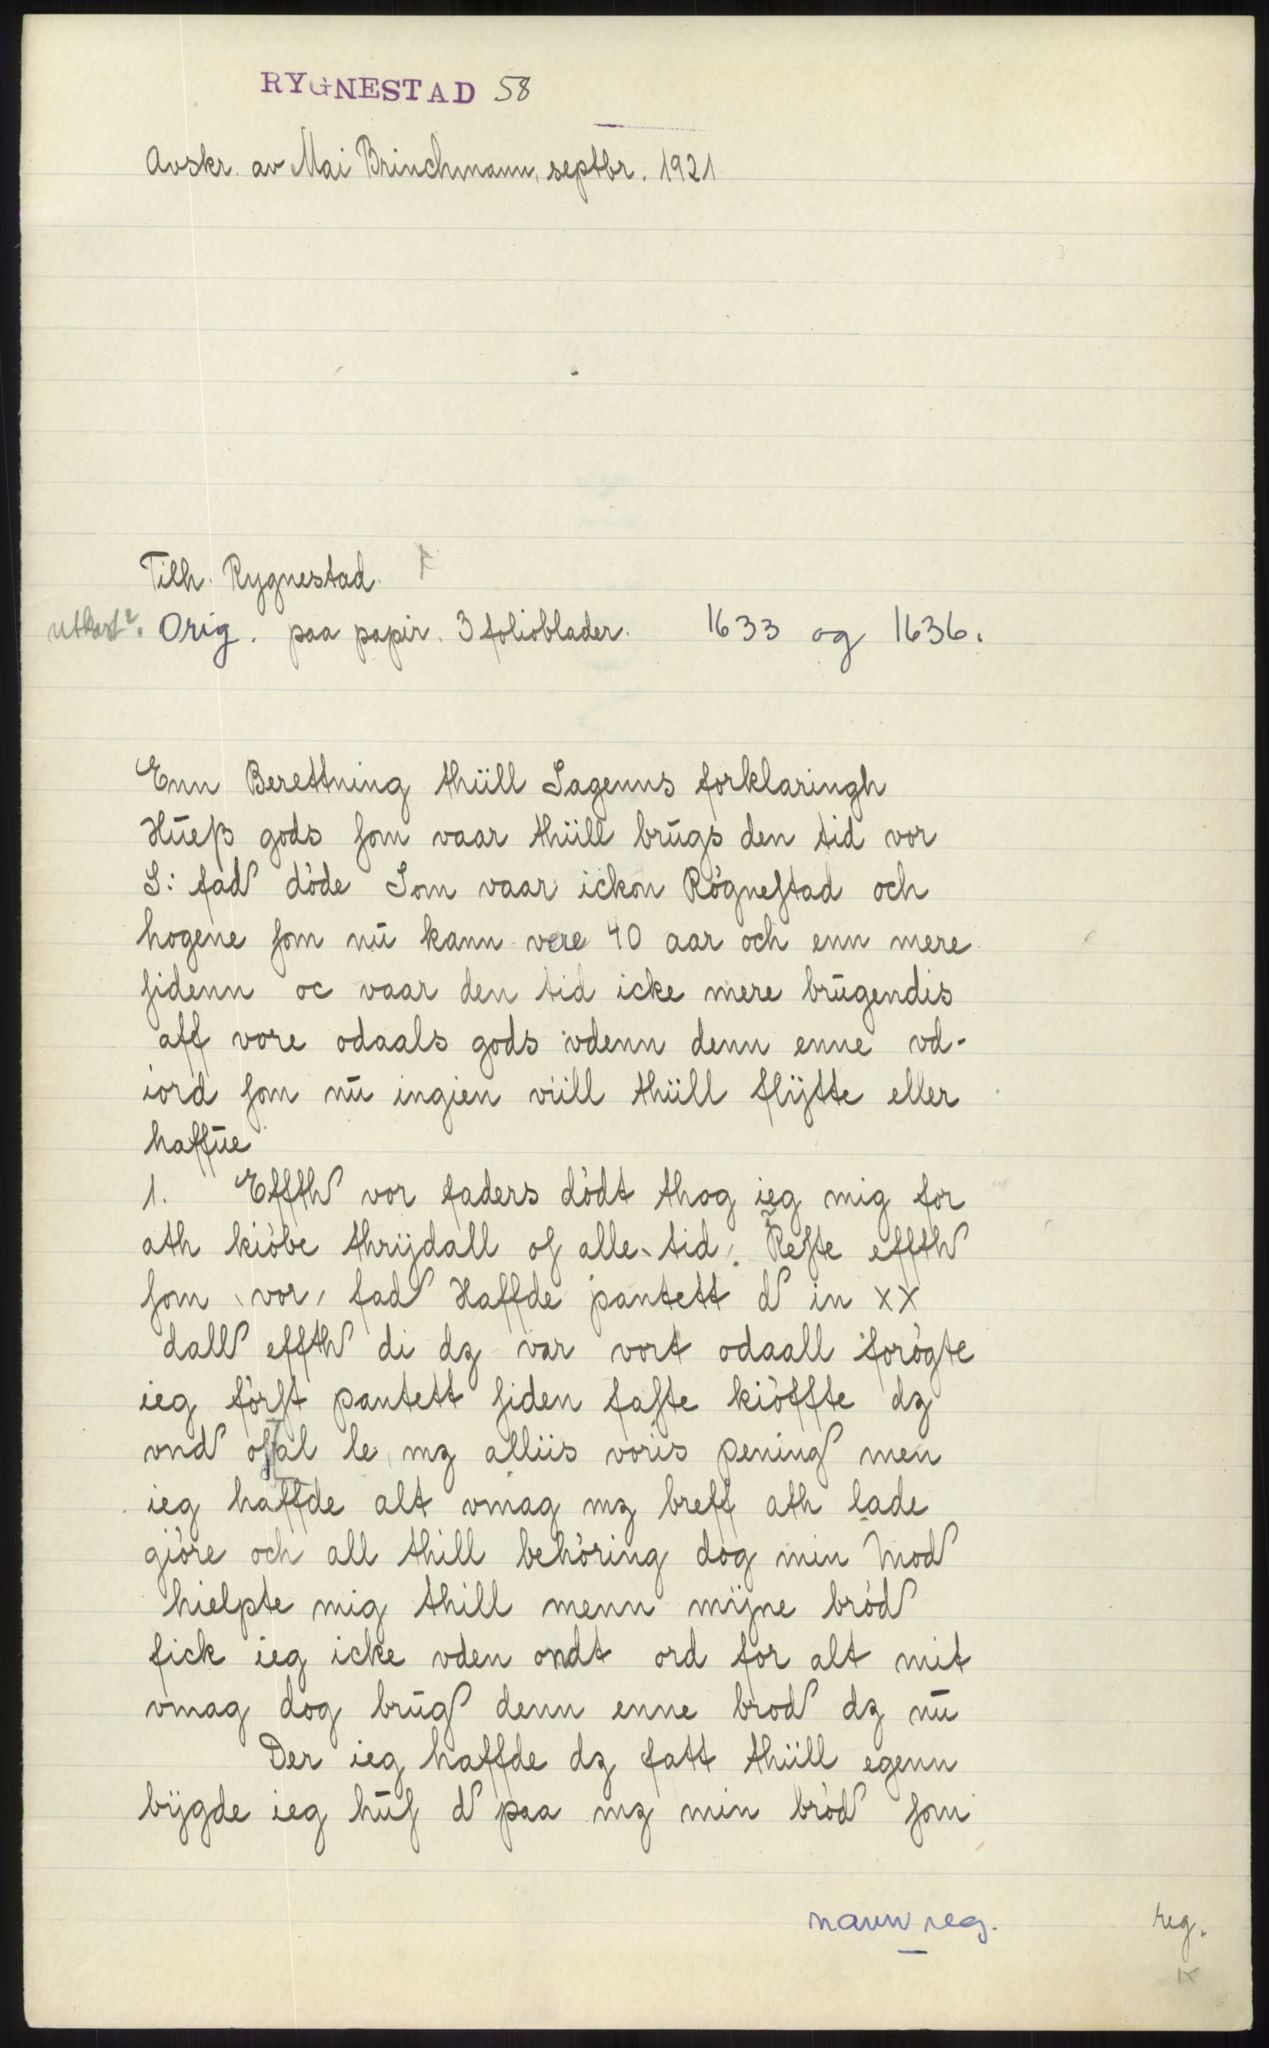 RYGNESTAD 58
Avskr. av Mai Brinchmann, septbr. 1921
Tilh. Rygnestad.
utkast?. Orig. paa papir. 3 folioblader. 1633 og 1636.
Enn Berettning thüll Sagenns forklaringh
Hūeß gods ſom vaar thüll brūgs den tid vor
S: fad döde Som vaar ickon Rögneſtad och
hogene ſom nū kann vere 40 aar och enn mere
ſidenn oc vaar den tid icke mere brūgendis
aff vore odaals gods vdenn denn enne vd-
iord ſom nū ingien vüll thüll flÿtte eller
haffūe
1. Effth vor faders dödt thog ieg mig for
ath kiöbe thrÿdall oſ alle tid. Reſte effth
ſom vor fad Haffde pantett d in XX
dall effth di dz var vort odaall forögte
ieg förſt pantett ſiden faſte kiöffte dz
vnd oſal le mz alliis voris pening men
ieg haffde alt vmag mz breff ath lade
giöre och all thill behöring dog min Mod
hielpte mig thill menn mÿne bröd
fick ieg icke vden ondt ord for alt mit
vmag dog brūg denn enne brod dz nū
Der ieg haffde dz fatt thüll egenn
bÿgde ieg hūſ d paa mz min bröd ſom
navnreg.
reg.